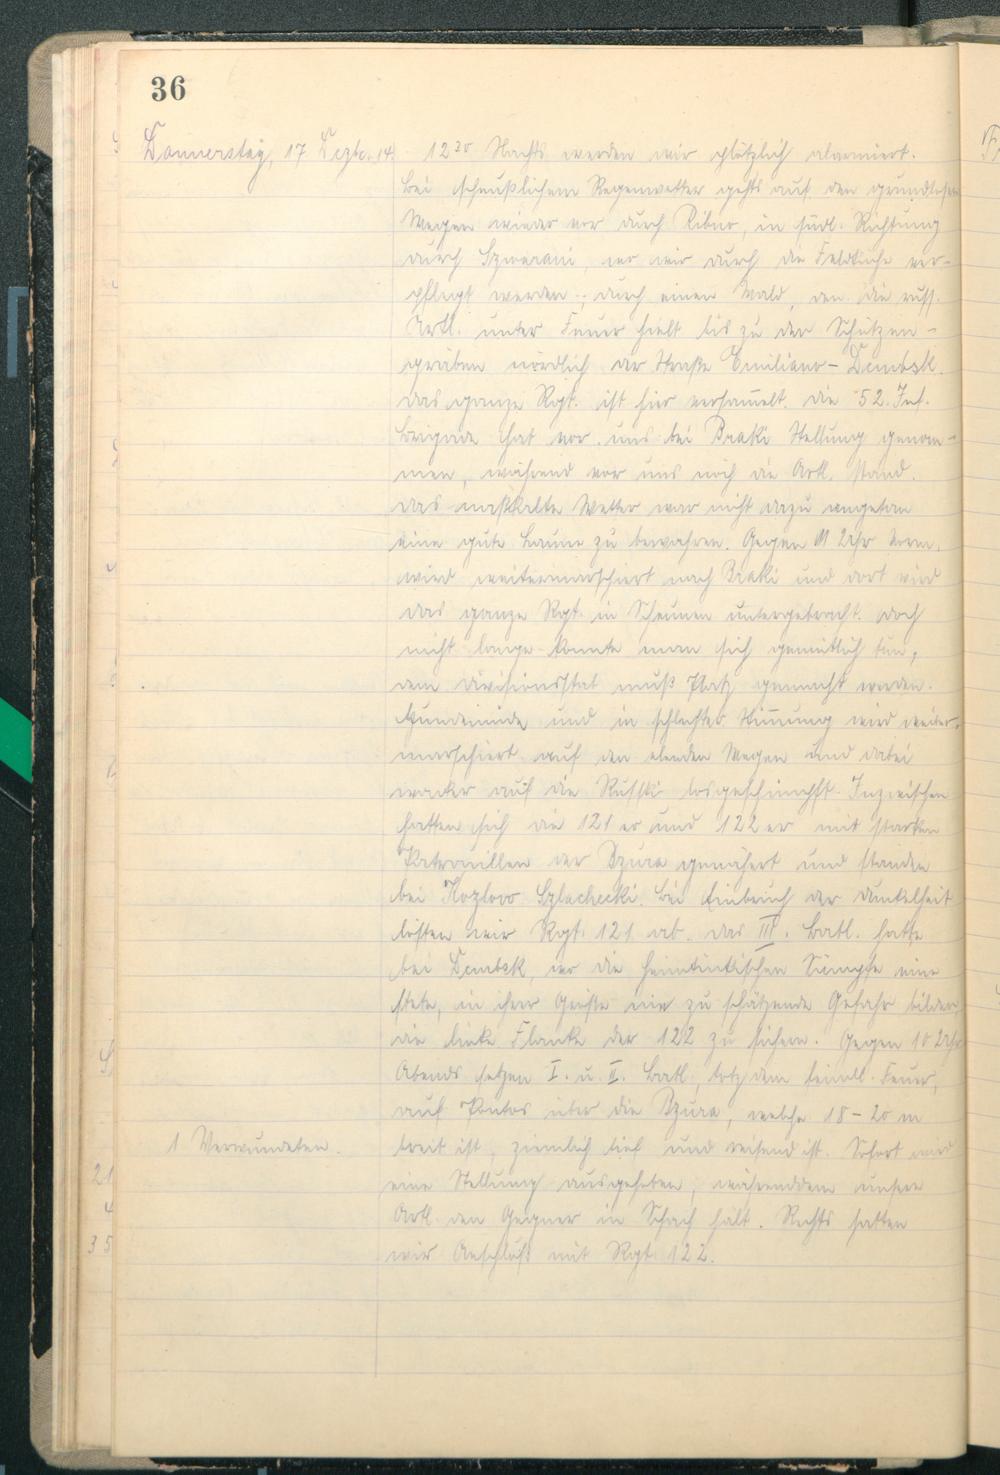 36
Donnerstag, 17 Dezbr. 14. 12 30 Nachts werden wir plötzlich alarmiert.
Bei scheußlichem Regenwetter gehts auf den grundlosen
Wegen wieder vor durch Ribno, in südl. Richtung
durch Szwarani, wo wir durch die Feldküche ver-
pflegt werden; durch einen Wald, den die russ.
Artl. unter Feuer hielt bis zu den Schützen-
gräben nördlich der Straße Emilianow - Dembsk.
Das ganze Rgt. ist hier versammelt. Die 52. Inf.
Brigade hat vor uns bei Braki Stellung genom-
men, während vor uns noch die Artl. stand.
Das naßkalte Wetter war nicht dazu angetan
eine gute Laune zu bewahren. Gegen 11 Uhr Vorm.
wird weitermarschiert nach Braki und dort wird
das ganze Rgt. in Scheunen untergebracht. Doch
nicht lange konnte man sich gemütlich tun,
dem Divisionsstab muß Platz gemacht werden.
Hundemüde und in schlechter Stimmung wird weiter-
marschiert auf den elenden Wegen und dabei
wacker auf die Russki losgeschimpft. Inzwischen
hatten sich die 121er und 122er mit starken
Patrouillen der Bzura genähert und standen
bei Kozlow Szlachecki. Bei Einbruch der Dunkelheit
lösten wir Rgt. 121 ab. Das III. Batl. hatte
bei Dembsk, wo die heimtückischen Sümpfe eine
stete, in ihrer Größe nie zu schätzende Gefahr bilden,
die linke Flanke der 122 zu sichern. Gegen 10 Uhr
Abends setzen I. u. II. Batl. trotz dem feindl. Feuer,
auf Pontos über die Bzura, welche 18-20 m
1 Verwundeten. breit ist, ziemlich tief und reißend ist. Sofort wird
eine Stellung ausgehoben, währenddem unsere
Artl. den Gegner in Schach hält. Rechts hatten
wir Anschluß mit Rgt. 122.